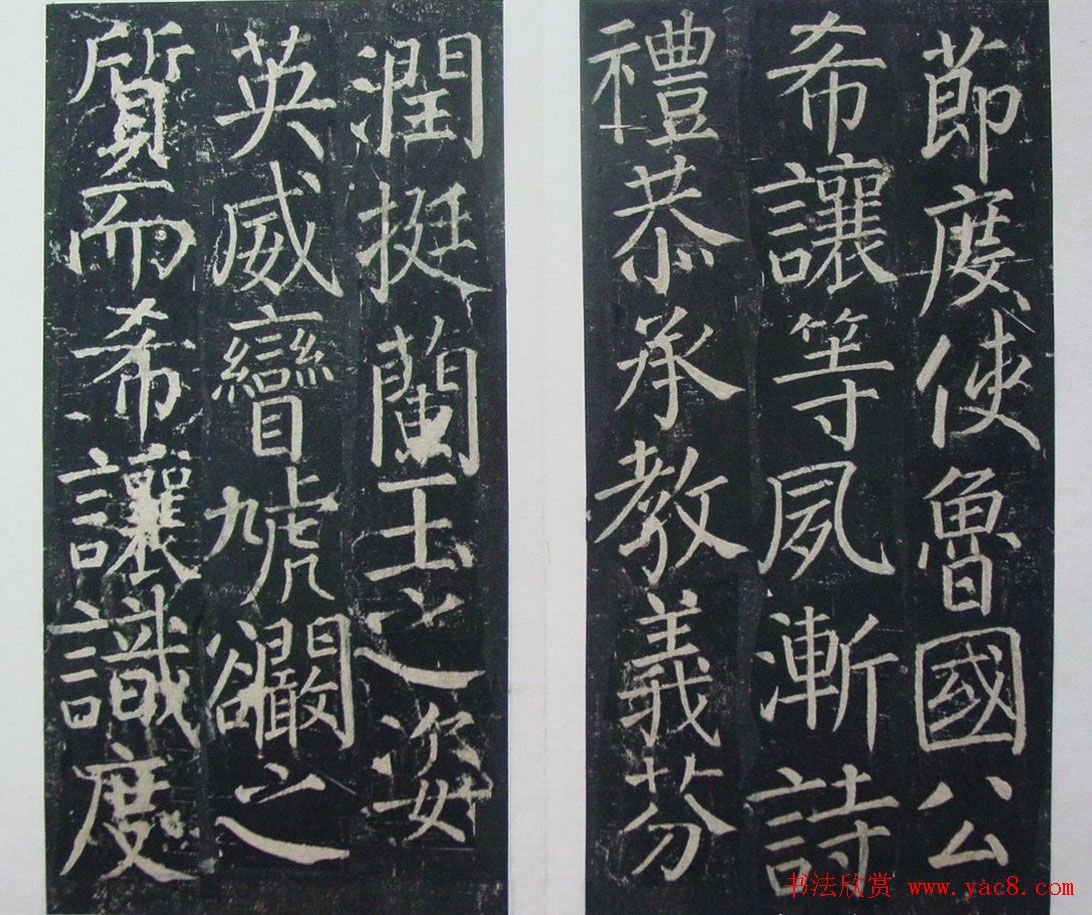 節度使魯國公
希讓等夙漸詩
禮恭承教義芬
潤挺蘭玉之姿
英威矕虓之
質而希讓識度
书法欣赏 www.yac8.com